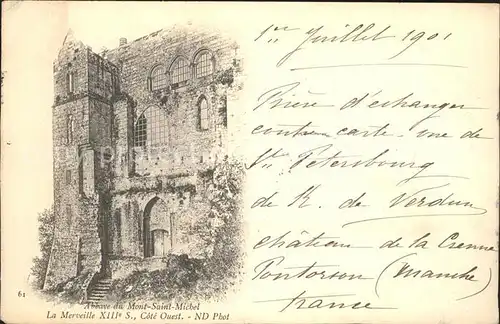 1er Juillet 1901
Prière d'échanger
contre carte-vue de
St. Pétersbourg
de R. de Verdun
château de la Crenne
Pontorson (Manche)
France
61
Abbaye du Mont-Saint-Michel
La Merveille XIIIe S., Côté Ouest. - ND Phot